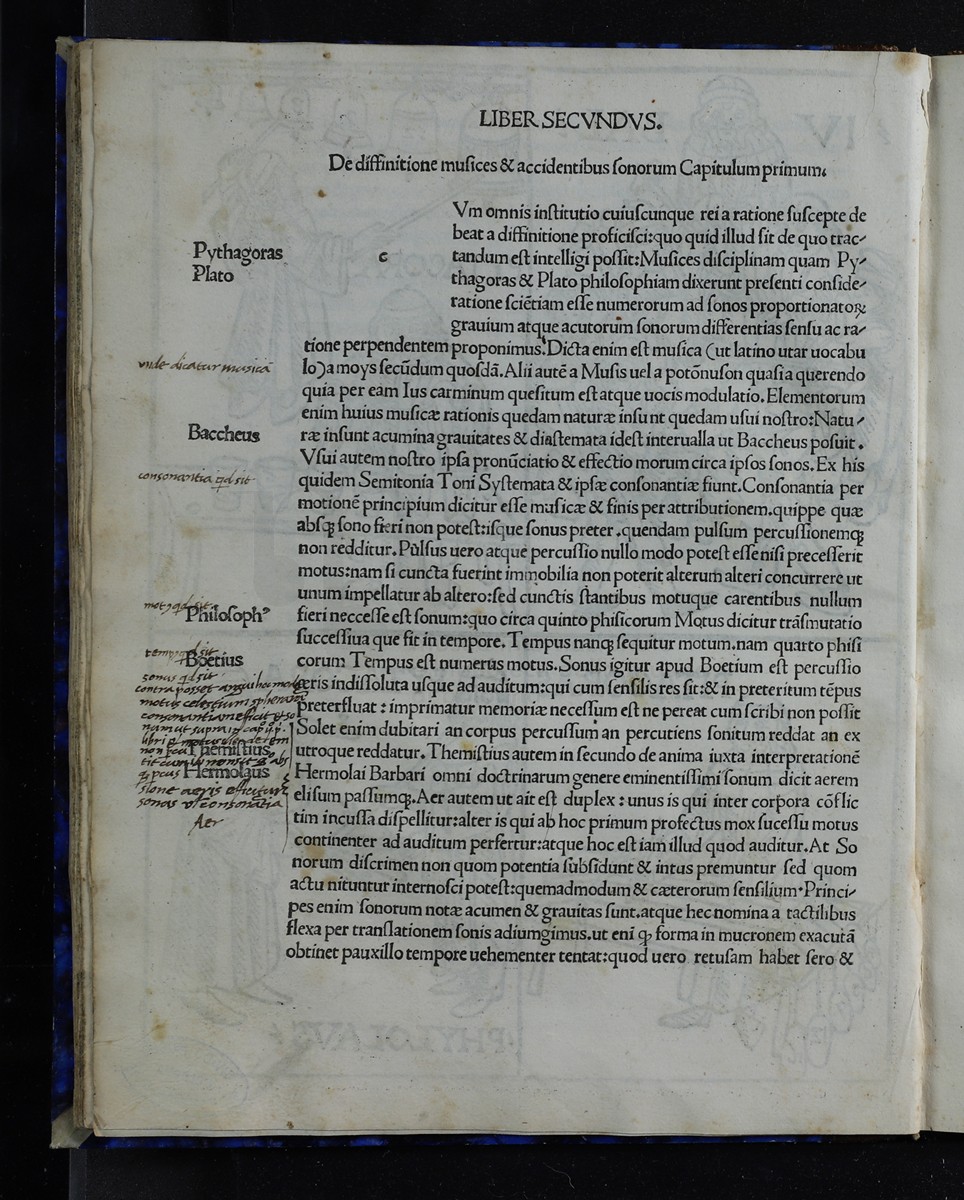 LIBER SECVNDVS.
De diffinitione muſices & accidentibus ſonorum Capitulum primum.
Pythagoras
Plato
c
Vm omnis inſtitutio cuiuſcunque rei a ratione ſuſcepte de
beat a diffinitione proficiſci:quo quid illud ſit de quo trac-
tandum eſt intelligi poſſit:Muſices diſciplinam quam Py-
thagoras & Plato philoſophiam dixerunt preſenti conſide-
ratione ſciētiam eſſe numerorum ad ſonos proportionatoꝝ
grauium atque acutorum ſonorum differentias ſenſu ac ra-
tione perpendentem proponimus.Dicta enim eſt muſica (ut latino utar uocabu
lo)a moys ſecūdum quoſdā.Alii autē a Muſis uel a potōnuſon quaſi a querendo
quia per eam Ius carminum queſitum eſt atque uocis modulatio.Elementorum
enim huius muſicæ rationis quedam naturæ inſunt quedam uſui noſtro:Natu-
ræ inſunt acumina grauitates & diaſtemata ideſt interualla ut Baccheus poſuit.
Vſui autem noſtro ipſa pronūciatio & effectio morum circa ipſos ſonos.Ex his
quidem Semitonia Toni Syſtemata & ipſæ conſonantiæ fiunt.Conſonantia per
motionē principium dicitur eſſe muſicæ & finis per attributionem.quippe quæ
abſqꝫ ſono fieri non poteſt:iſque ſonus preter .quendam pulſum percuſſionemqꝫ
non redditur.Pulſus uero atque percuſſio nullo modo poteſt eſſe niſi preceſſerit
motus:nam ſi cuncta fuerint immobilia non poterit alterum alteri concurrere ut
unum impellatur ab altero:ſed cunctis ſtantibus motuque carentibus nullum
fieri necceſſe eſt ſonum:quo circa quinto phiſicorum Motus dicitur trāſmutatio
ſucceſſiua que fit in tempore.Tempus nanqꝫ ſequitur motum.nam quarto phiſi
corum Tempus eſt numerus motus.Sonus igitur apud Boetium eſt percuſſio
aeris indiſſoluta uſque ad auditum:qui cum ſenſilis res ſit:& in preteritum tēpus
preterfluat:imprimatur memoriæ neceſſum eſt ne pereat cum ſcribi non poſſit
Solet enim dubitari an corpus percuſſum an percutiens ſonitum reddat an ex
utroque reddatur.Themiſtius autem in ſecundo de anima iuxta interpretationē
Hermolai Barbari omni doctrinarum genere eminentiſſimi ſonum dicit aerem
eliſum paſſumqꝫ.Aer autem ut ait eſt duplex:unus is qui inter corpora cōflic
tim incuſſa diſpellitur:alter is qui ab hoc primum profectus mox ſuceſſu motus
continenter ad auditum perfertur:atque hoc eſt iam illud quod auditur.At So
norum diſcrimen non quom potentia ſubſidunt & intus premuntur ſed quom
actu nituntur internoſci poteſt:quemadmodum & cæterorum ſenſilium.Princi-
pes enim ſonorum notæ acumen & grauitas ſunt.atque hec nomina a tactilibus
flexa per tranſlationem ſonis adiumgimus.ut eni ꝙ forma in mucronem exacutā
obtinet pauxillo tempore uehementer tentat:quod uero retuſam habet ſero &
vnde dicatur musicā
Baccheus
consonantia qd sit
motus qd sit
Philoſophꝰ
tempus qd sit
Boetius
sonus qd sit
Themiſtius
Hermolaus
Aer